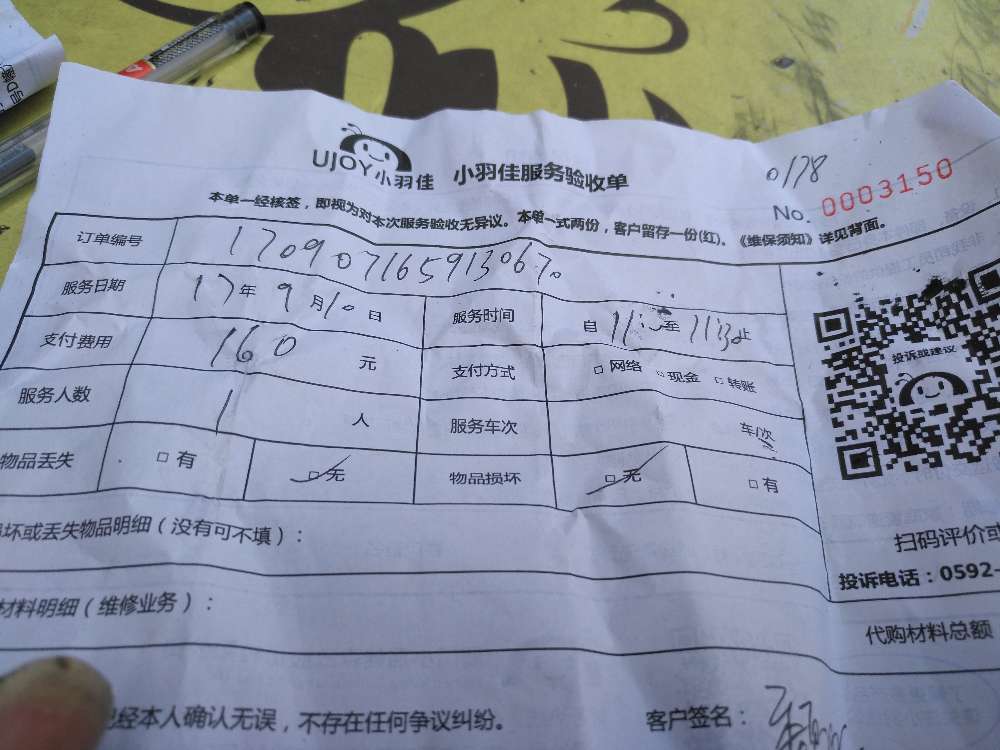 UJOY小羽佳 小羽佳服务验收单
0178
No. 0003150
本单一经核签，即视为对本次服务验收无异议。本单一式两份，客户留存一份(红)。《维保须知》详见背面。
订单编号 170907165913067
服务日期 17年9月10日 服务时间 自 至 止
支付费用 160 元 支付方式 □网络 □现金 □转账
服务人数 1 人 服务车次 车/次
物品丢失 □有 □无 物品损坏 □无 □有
投诉或建议
坏或丢失物品明细（没有可不填）：
扫码评价或
投诉电话：0592-
材料明细（维修业务）：
代购材料总额
已经本人确认无误，不存在任何争议纠纷。 客户签名：